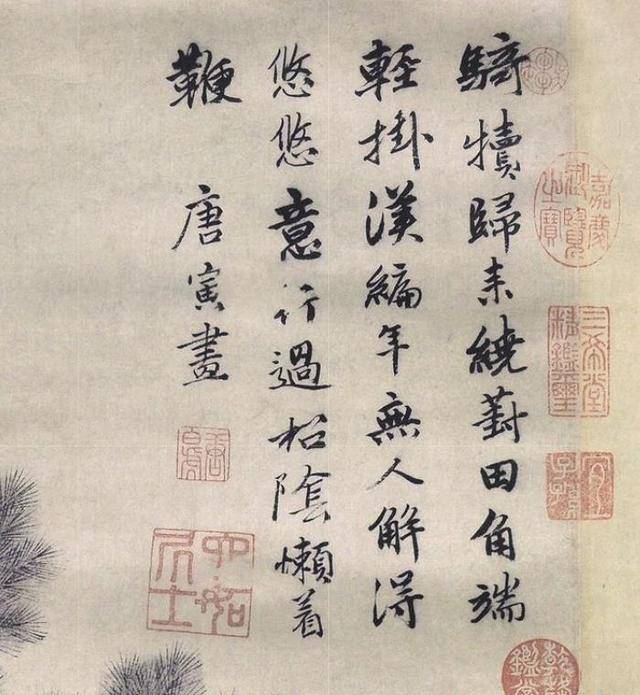 騎犢歸来繞葑田角端
輕掛漢編年無人解得
悠悠意行過松陰懶着
鞭 唐寅畫
唐白虎
六如居士
嘉慶御覽之寶
三希堂精鑑璽
宜子孫
乾隆鑑賞